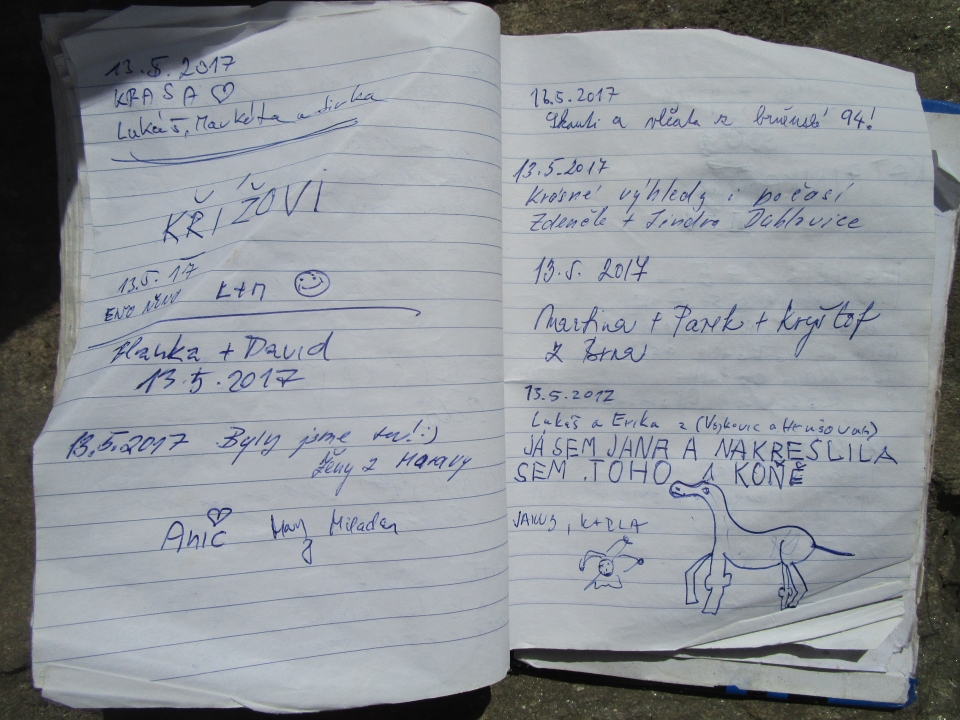 13.5.2017
KRASA ♡
Lukáš, Markéta a Jirka
KŘÍŽOVI
13.5.17
K+M ☺
Hanka + David
13.5.2017
13.5.2017 Byly jsme tu! :)
ženy z Moravy
Anič
13.5.2017
Skauti a vlčata z 94!
13.5.2017
Krásné výhledy i počasí
Zdeněk + Jindra
13.5. 2017
Martina + Pavek + Kryštof
z Brna
13.5.2017
Lukáš a Erika z (Vojkovic a Hrušovan)
JÁ SEM JANA A NAKRESLILA
SEM TOHO KONĚ
JAKUB, KARLA